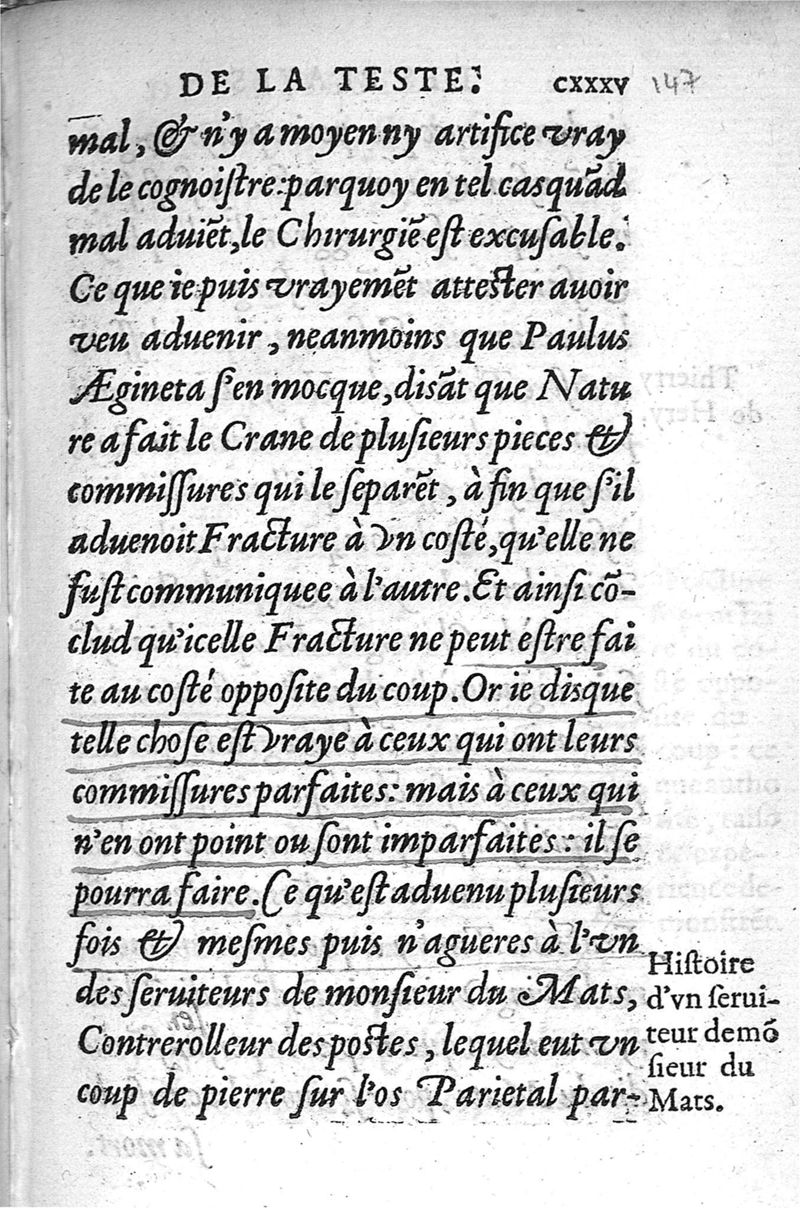 DE LA TESTE. CXXXV 147
mal, & n'y a moyen ny artifice vray
de le cognoiſtre: parquoy en tel cas quãd
mal aduiẽt, le Chirurgiẽ eſt excuſable.
Ce que ie puis vrayemẽt atteſter auoir
veu aduenir, neanmoins que Paulus
Ægineta ſ'en mocque, diſãt que Natu
re a fait le Crane de pluſieurs pieces &
commiſſures qui le ſeparẽt, à fin que ſ'il
aduenoit Fracture à vn coſté, qu'elle ne
fuſt communiquee à l'autre. Et ainſi cõ-
clud qu'icelle Fracture ne peut eſtre fai
te au coſté oppoſite du coup. Or ie dis que
telle choſe eſt vraye à ceux qui ont leurs
commiſſures parfaites: mais à ceux qui
n'en ont point ou ſont imparfaites: il ſe
pourra faire. Ce qu'eſt aduenu pluſieurs
fois & meſmes puis n'agueres à l'vn
des ſeruiteurs de monſieur du Mats,
Contrerolleur des poſtes, lequel eut vn
coup de pierre ſur l'os Parietal par-
Hiſtoire
d'vn ſerui-
teur de mõ
ſieur du
Mats.